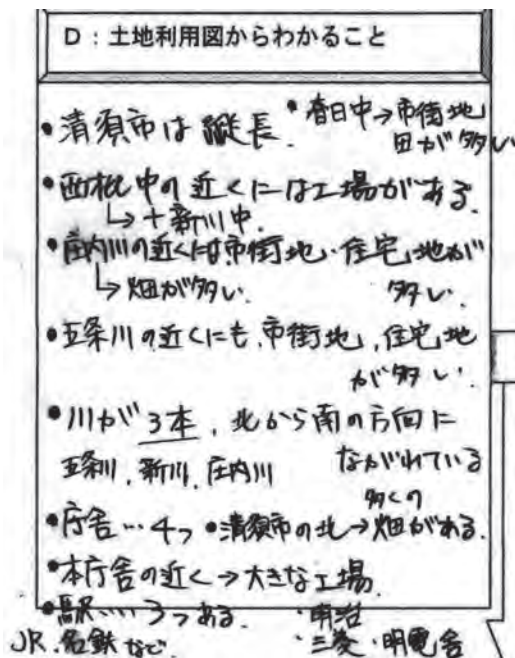 D：土地利用図からわかること
•清須市は縦長 •春日中→市街地
田が多い
•西枇中の近くには工場がある
↳+新川中.
•庄内川の近くには市街地・住宅地が
多い.
↳畑が多い.
•五条川の近くにも,市街地,住宅地
が多い.
•川が3本,北から南の方向に
ながれている
五条川,新川,庄内川
•庁舎…4つ •清須市の北→多くの
畑がある.
•本庁舎の近く→大きな工場
・明治
・三菱・明電舎
•駅….3つある.
JR.名鉄など